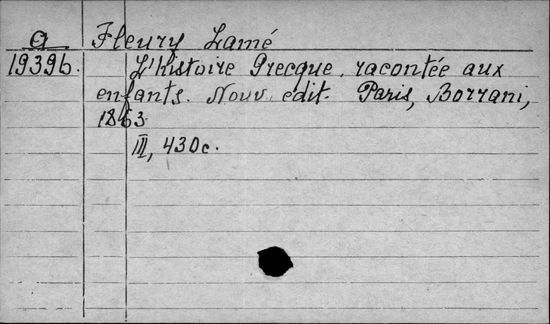 a Fleury Lamé
19396. L'histoire Grecque, racontée aux
enfants. Nouv. edit. Paris, Borrani,
1863
III, 430c.